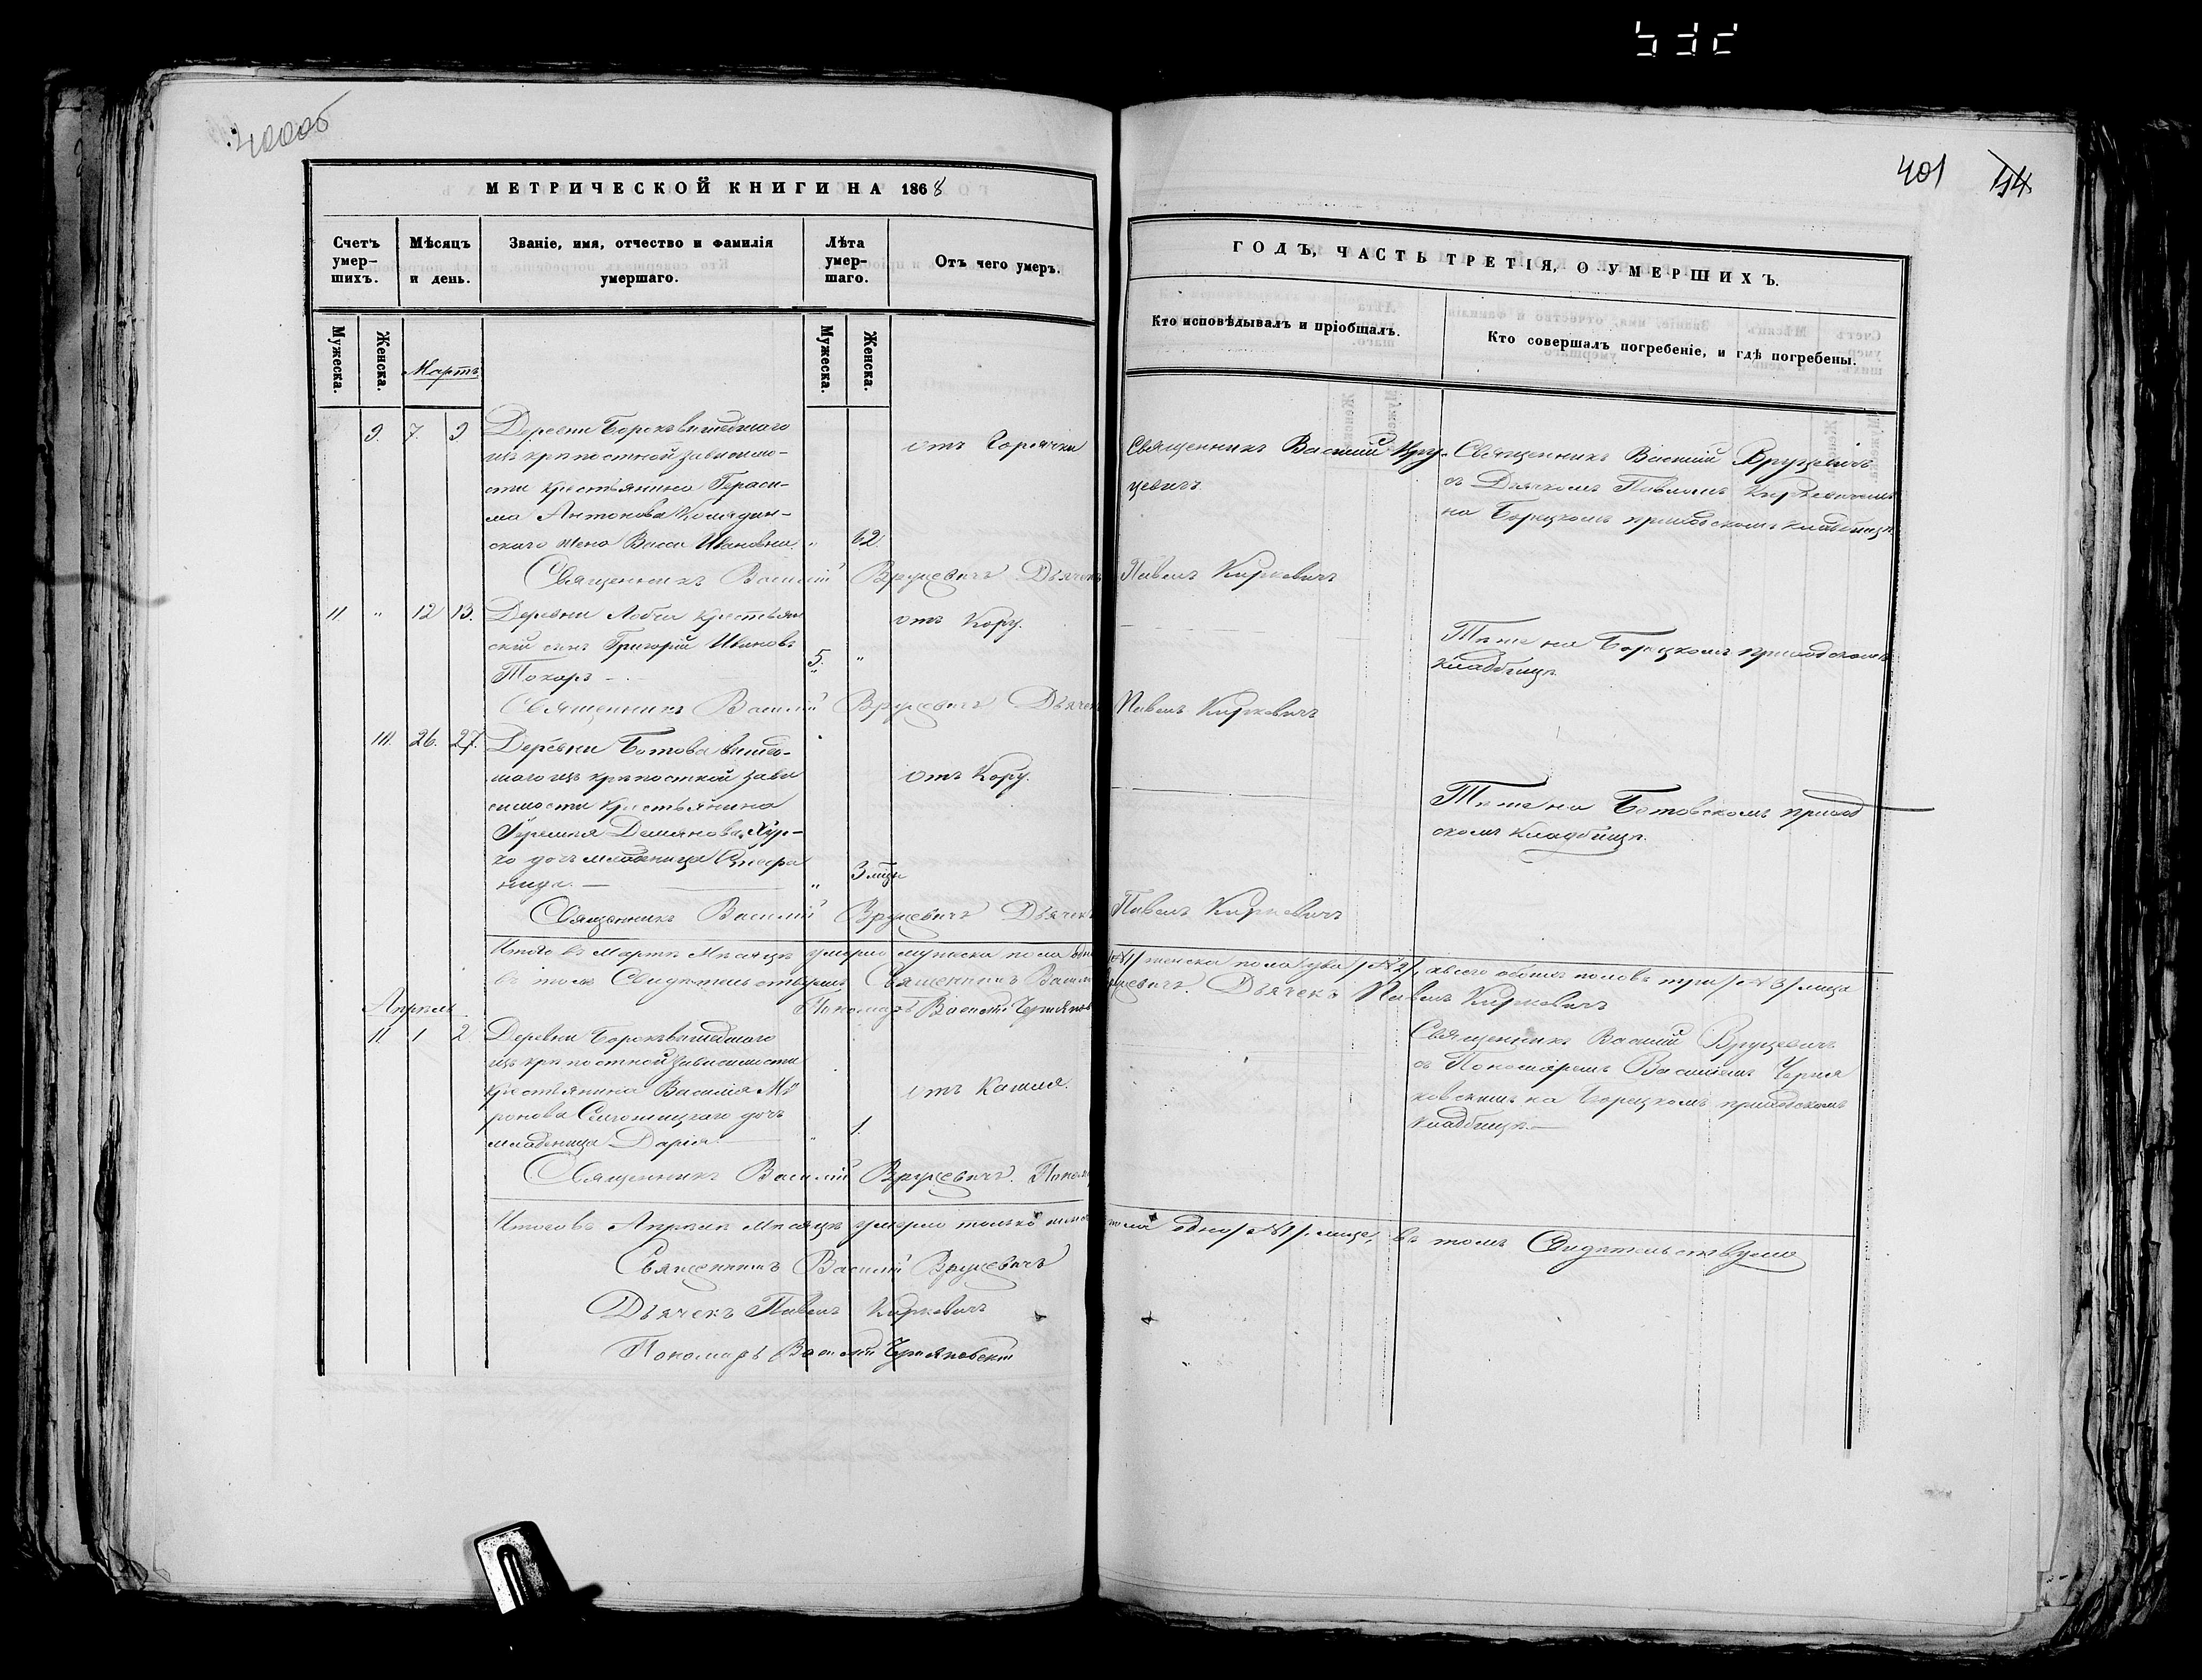 532
400об
401
44
МЕТРИЧЕСКОЙ КНИГИ НА 1868
ГОДЪ, ЧАСТЬ ТРЕТІЯ, О УМЕРШИХЪ.
Счетъ умер-шихъ.
Мѣсяцъ и день.
Званіе, имя, отчество и фамилія умершаго.
Лѣта умер-шаго.
Отъ чего умеръ.
Кто исповѣдывалъ и пріобщалъ.
Кто совершалъ погребеніе, и гдѣ погребены.
Мужеска.
Женска.
Мартъ
Мужеска.
Женска.
9. 7. 9
Деревни Борокъ вышедшаго
изъ крѣпостной зависимо-
сти крестьянина Гераси-
ма Антонова
скаго жена Васса Ивановна. " 62.
отъ Горячки
Священникъ Василій Вру-
цевичъ.
Священникъ Василій Вруцевичъ
съ Дьячкомъ Павломъ Киркевичемъ
на Борецкомъ приходскомъ кладбищѣ.
Священникъ Василій Вруцевичъ Дьячекъ Павелъ Киркевичъ
11 " 12 13.
Деревни крестьян
скій сынъ Григорій Ивановъ
Токарь - 5. "
отъ Кору.
Тѣже на Борецкомъ приходскомъ
кладбищѣ.
Священникъ Василій Вруцевичъ Дьячекъ Павелъ Киркевичъ
26. 27.
Деревни Ботова вышед-
шаго изъ крѣпостной зави
симости крестьянина
Демянова
ко дочь младеница
нида. — " 3 мѣсц
отъ Кору.
Тѣже на Ботовскомъ приход
скомъ кладбищѣ.
Священникъ Василій Вруцевичъ Дьячекъ Павелъ Киркевичъ
Итого въ Мартѣ Мѣсяцѣ умерло мужеска пола одно /№1/ женска пола два /№2/, а всего обоихъ половъ три /№3/ лица
въ томъ Свидѣтельствуемъ Священникъ Василій Вруцевичъ. Дьячекъ Павелъ Киркевичъ
Пономарь Василій
Апрѣль
11 1 2
Деревни Борокъ вышедшаго
изъ крѣпостной зависимости
крестьянина Василія Мѣ
ронова дочь
младеница Дарія " 1.
отъ Кашля.
Священникъ Василій Вруцевичъ
съ Пономаремъ Василіемъ Черня
ковскимъ на Борецкомъ приходскомъ
кладбищѣ.—
Священникъ Василій Вруцевичъ.
Итого въ Апрѣлѣ Мѣсяцѣ умерло только женска пола одно /№1/, лице, въ томъ Свидѣтельствуемъ
Священникъ Василій Вруцевичъ
Дьячекъ Павелъ Киркевичъ
Пономарь Василій Черняковскій